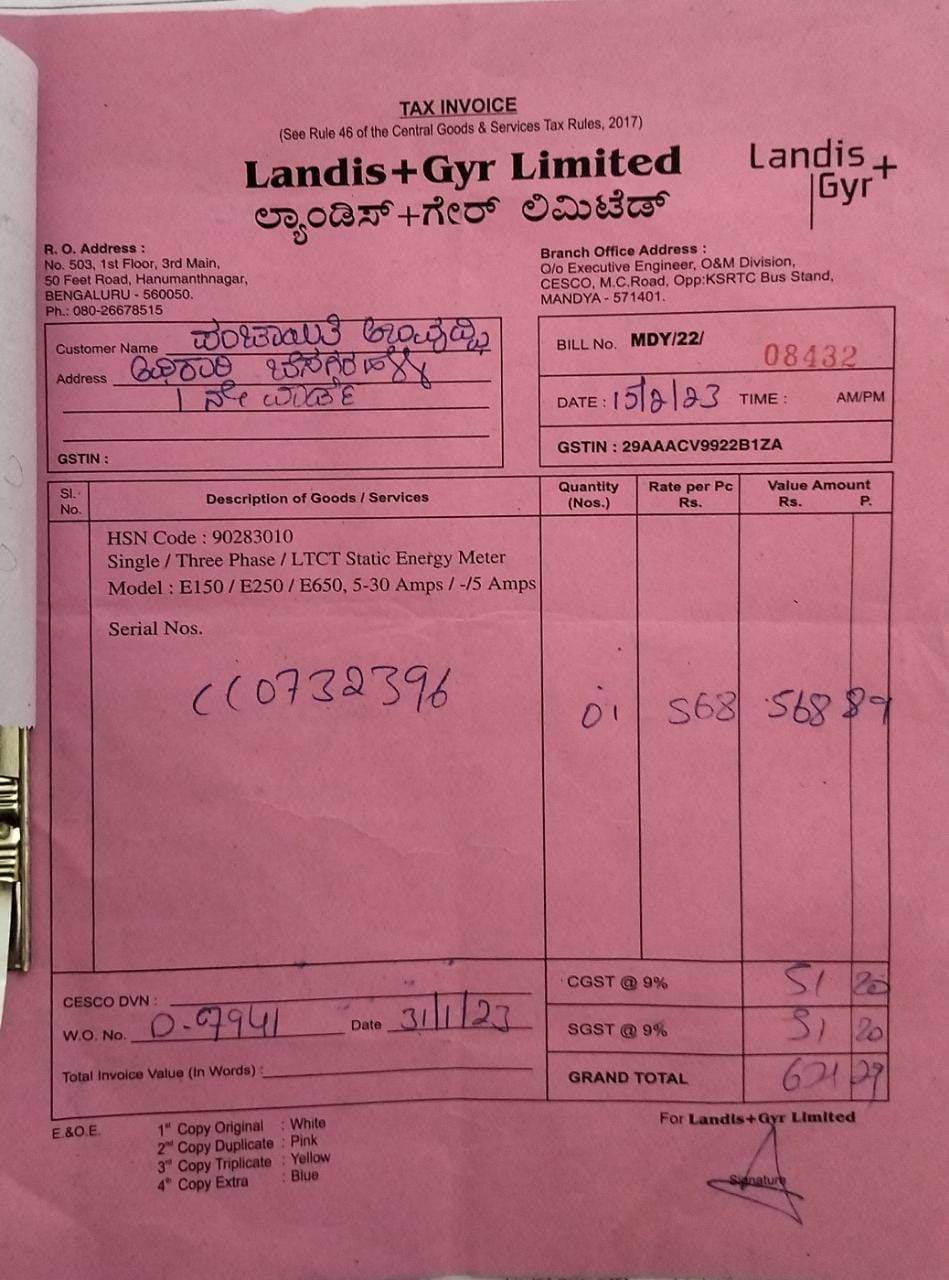 TAX INVOICE
(See Rule 46 of the Central Goods & Services Tax Rules, 2017)
Landis+Gyr Limited
ಲ್ಯಾಂಡಿಸ್+ಗೇರ್ ಲಿಮಿಟೆಡ್
Landis
Gyr+
R. O. Address :
No. 503, 1st Floor, 3rd Main,
50 Feet Road, Hanumanthnagar,
BENGALURU - 560050.
Ph.: 080-26678515
Branch Office Address :
O/o Executive Engineer, O&M Division,
CESCO, M.C.Road, Opp:KSRTC Bus Stand,
MANDYA - 571401.
Customer Name ಪಂಚಾಯಿತಿ ಅಭಿವೃದ್ಧಿ
Address ಅಧಿಕಾರಿ
1 ನೇ ವಾರ್ಡ್
GSTIN :
BILL No. MDY/22/ 08432
DATE : 15/2/23 TIME : AM/PM
GSTIN : 29AAACV9922B1ZA
Sl. No. Description of Goods / Services Quantity (Nos.) Rate per Pc Rs. Value Amount Rs. P.
HSN Code : 90283010
Single / Three Phase / LTCT Static Energy Meter
Model : E150 / E250 / E650, 5-30 Amps / -/5 Amps
Serial Nos.
CC0732396 01 568 568 89
CGST @ 9% 51 20
CESCO DVN :
W.O. No. 0-07941 Date 31/1/23
SGST @ 9% 51 20
Total Invoice Value (In Words) :
GRAND TOTAL 671 29
E.&O.E.
1st Copy Original : White
2nd Copy Duplicate : Pink
3rd Copy Triplicate : Yellow
4th Copy Extra : Blue
For Landis+Gyr Limited
Signature